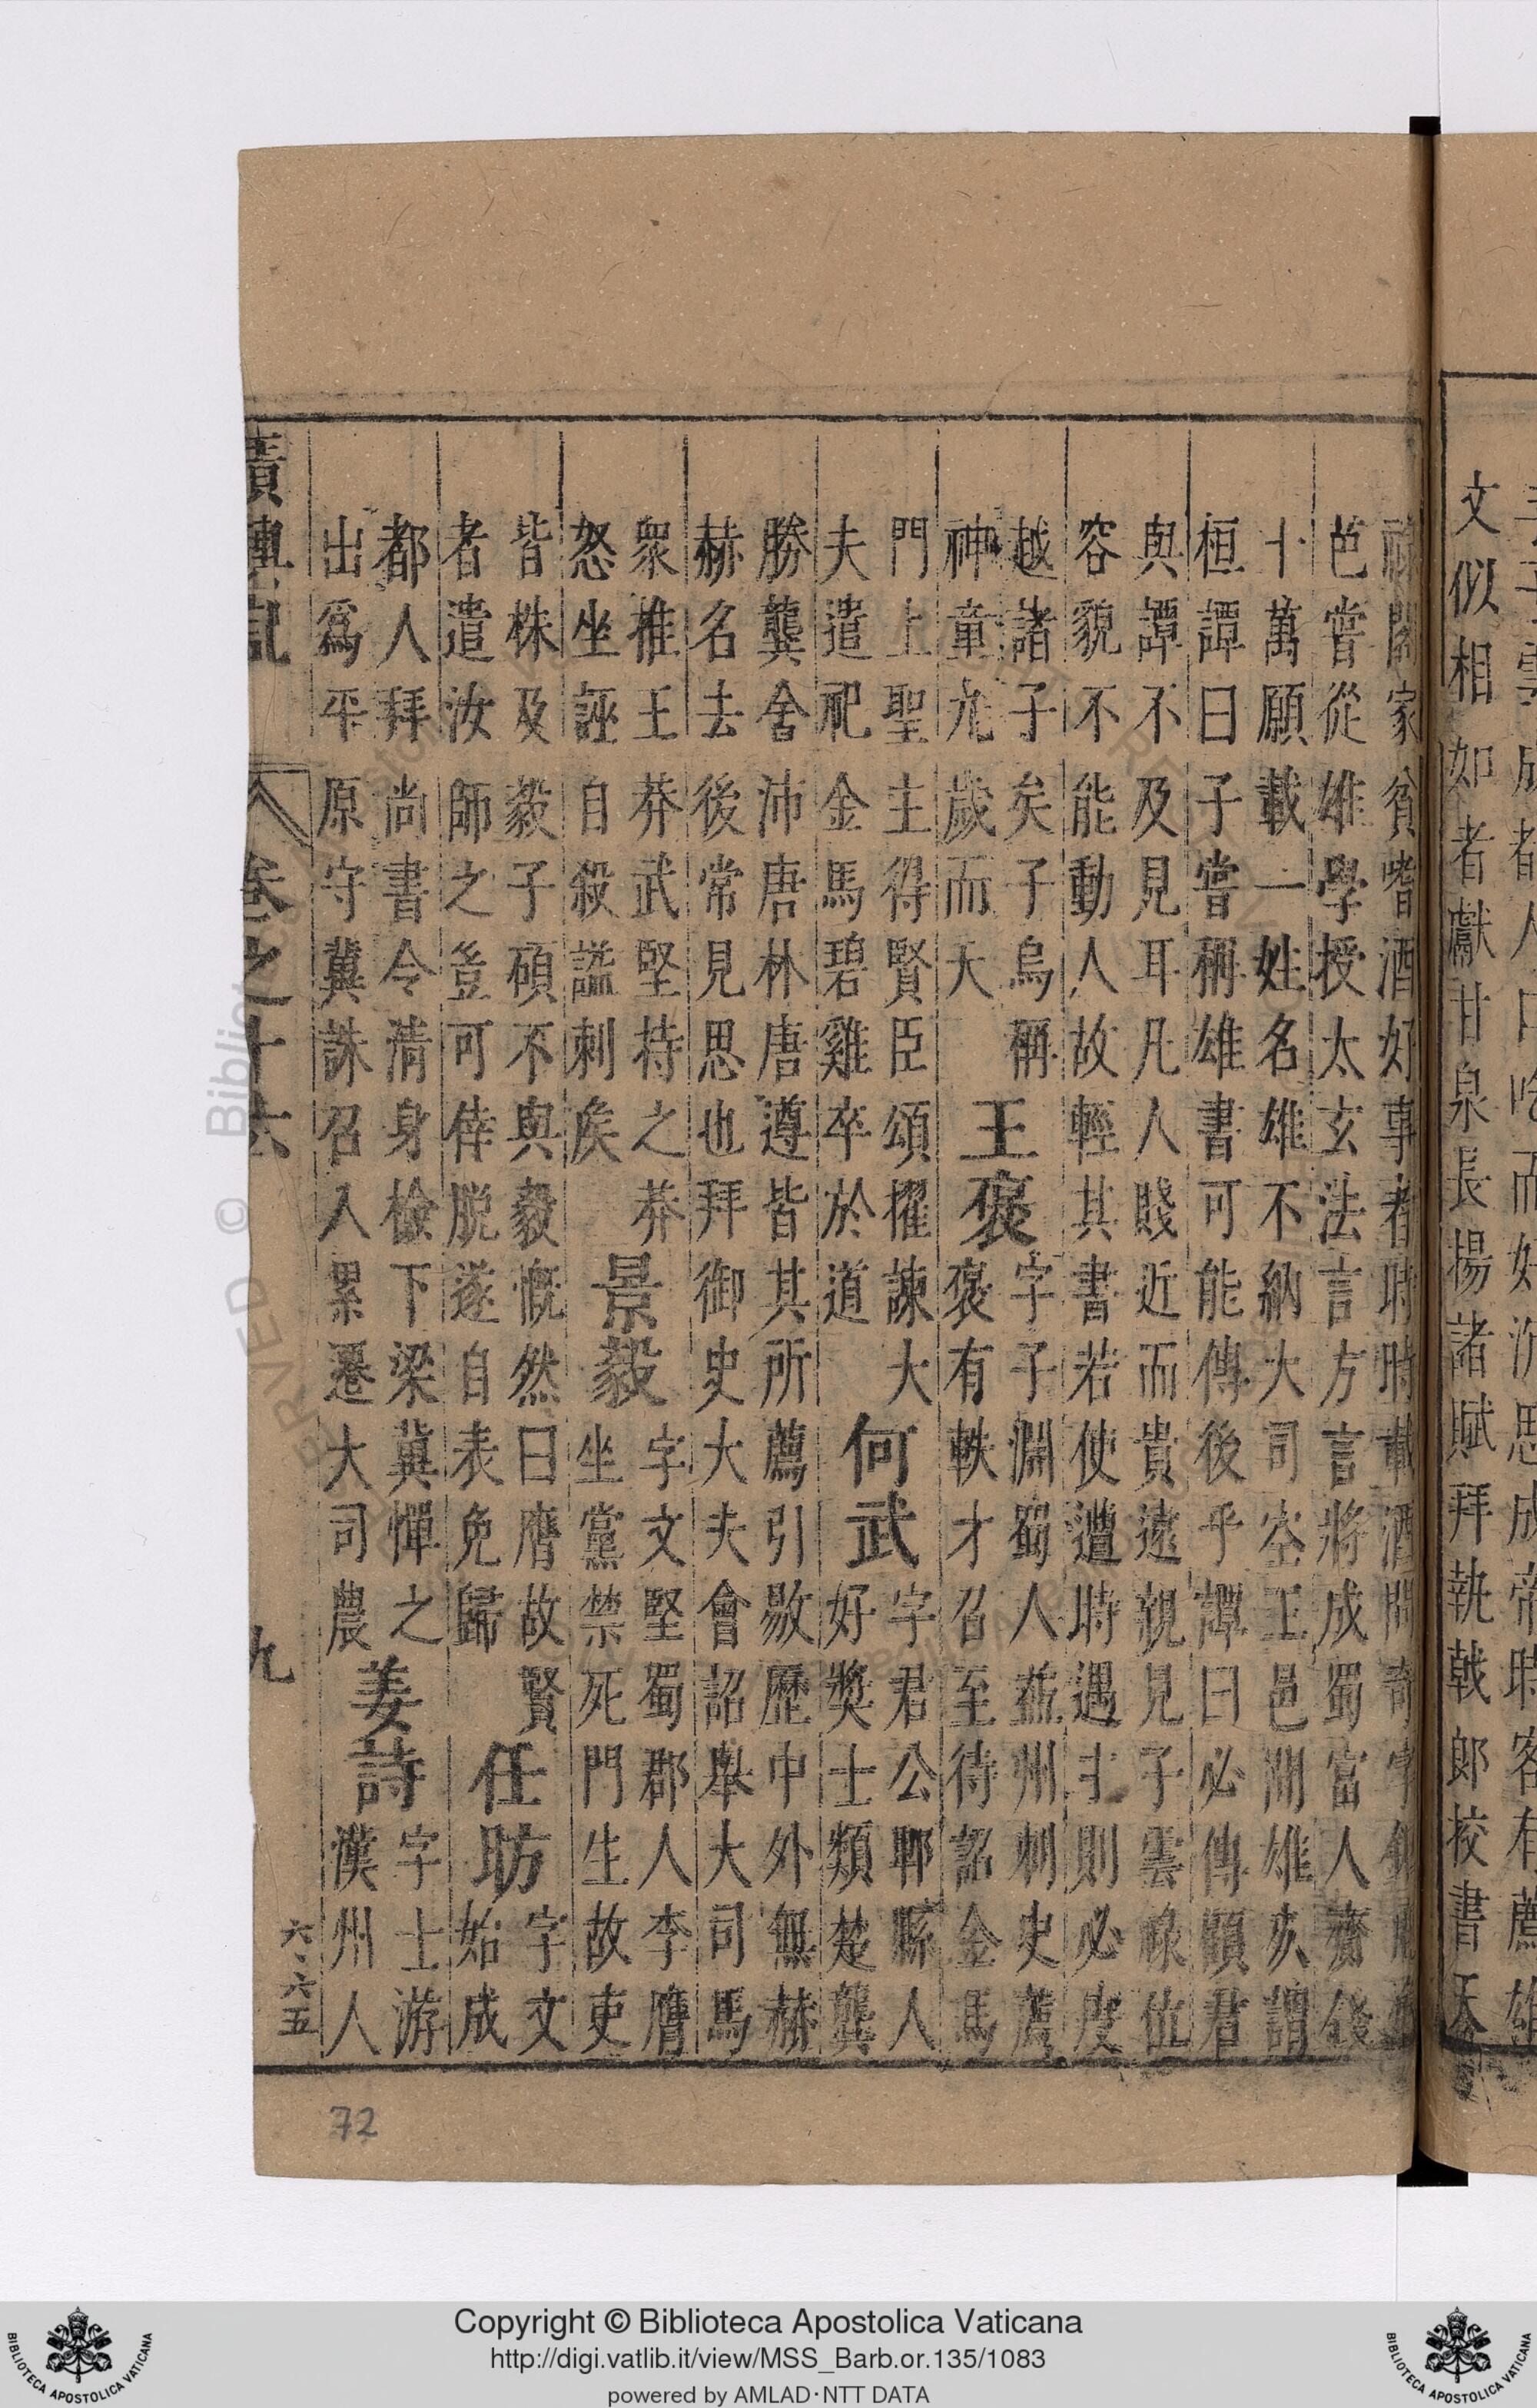 文似相如者獻甘泉長揚諸賦拜執戟郎挍書天
祿閣家貧嗜酒好事者時時載酒問奇字
芭嘗從雄學授太玄法言方言將成蜀富人齎錢
十萬願載一姓名雄不納大司空王邑納雄亥謂
桓譚曰子嘗稱雄書可能傳後乎譚曰必傳顧君
與譚不及見耳凡人賤近而貴遠親見子雲祿位
容貌不能動人故輕其書若使遭時遇主則必度
越諸子矣子烏稱
神童九歲而夭
王褒
字子淵蜀人益州刺史薦
褒有軼才召至待詔金馬
門上聖主得賢臣頌擢諫大
夫遣祀金馬碧雞卒於道
何武
字君公郫縣人
好獎士類楚龔
勝龔舍沛唐林唐遵皆其所薦引敭歷中外無赫
赫名去後常見思也拜御史大夫會詔舉大司馬
衆推王莽武堅持之莽
怒坐誣自殺謚剌矦
景毅
字文堅蜀郡人李膺
坐黨禁死門生故吏
皆株及毅子碩不與毅慨然曰膺故賢
者遣汝師之豈可倖脱遂自表免歸
任昉
字文
始成
都人拜尚書令清身檢下梁冀憚之
出爲平原守冀誅召入累遷大司農
姜詩
字士游
漢州人
卷之十六
九
六六五
72
Copyright © Biblioteca Apostolica Vaticana
http://digi.vatlib.it/view/MSS_Barb.or.135/1083
powered by AMLAD·NTT DATA
BIBLIOTECA APOSTOLICA VATICANA
BIBLIOTECA APOSTOLICA VATICANA